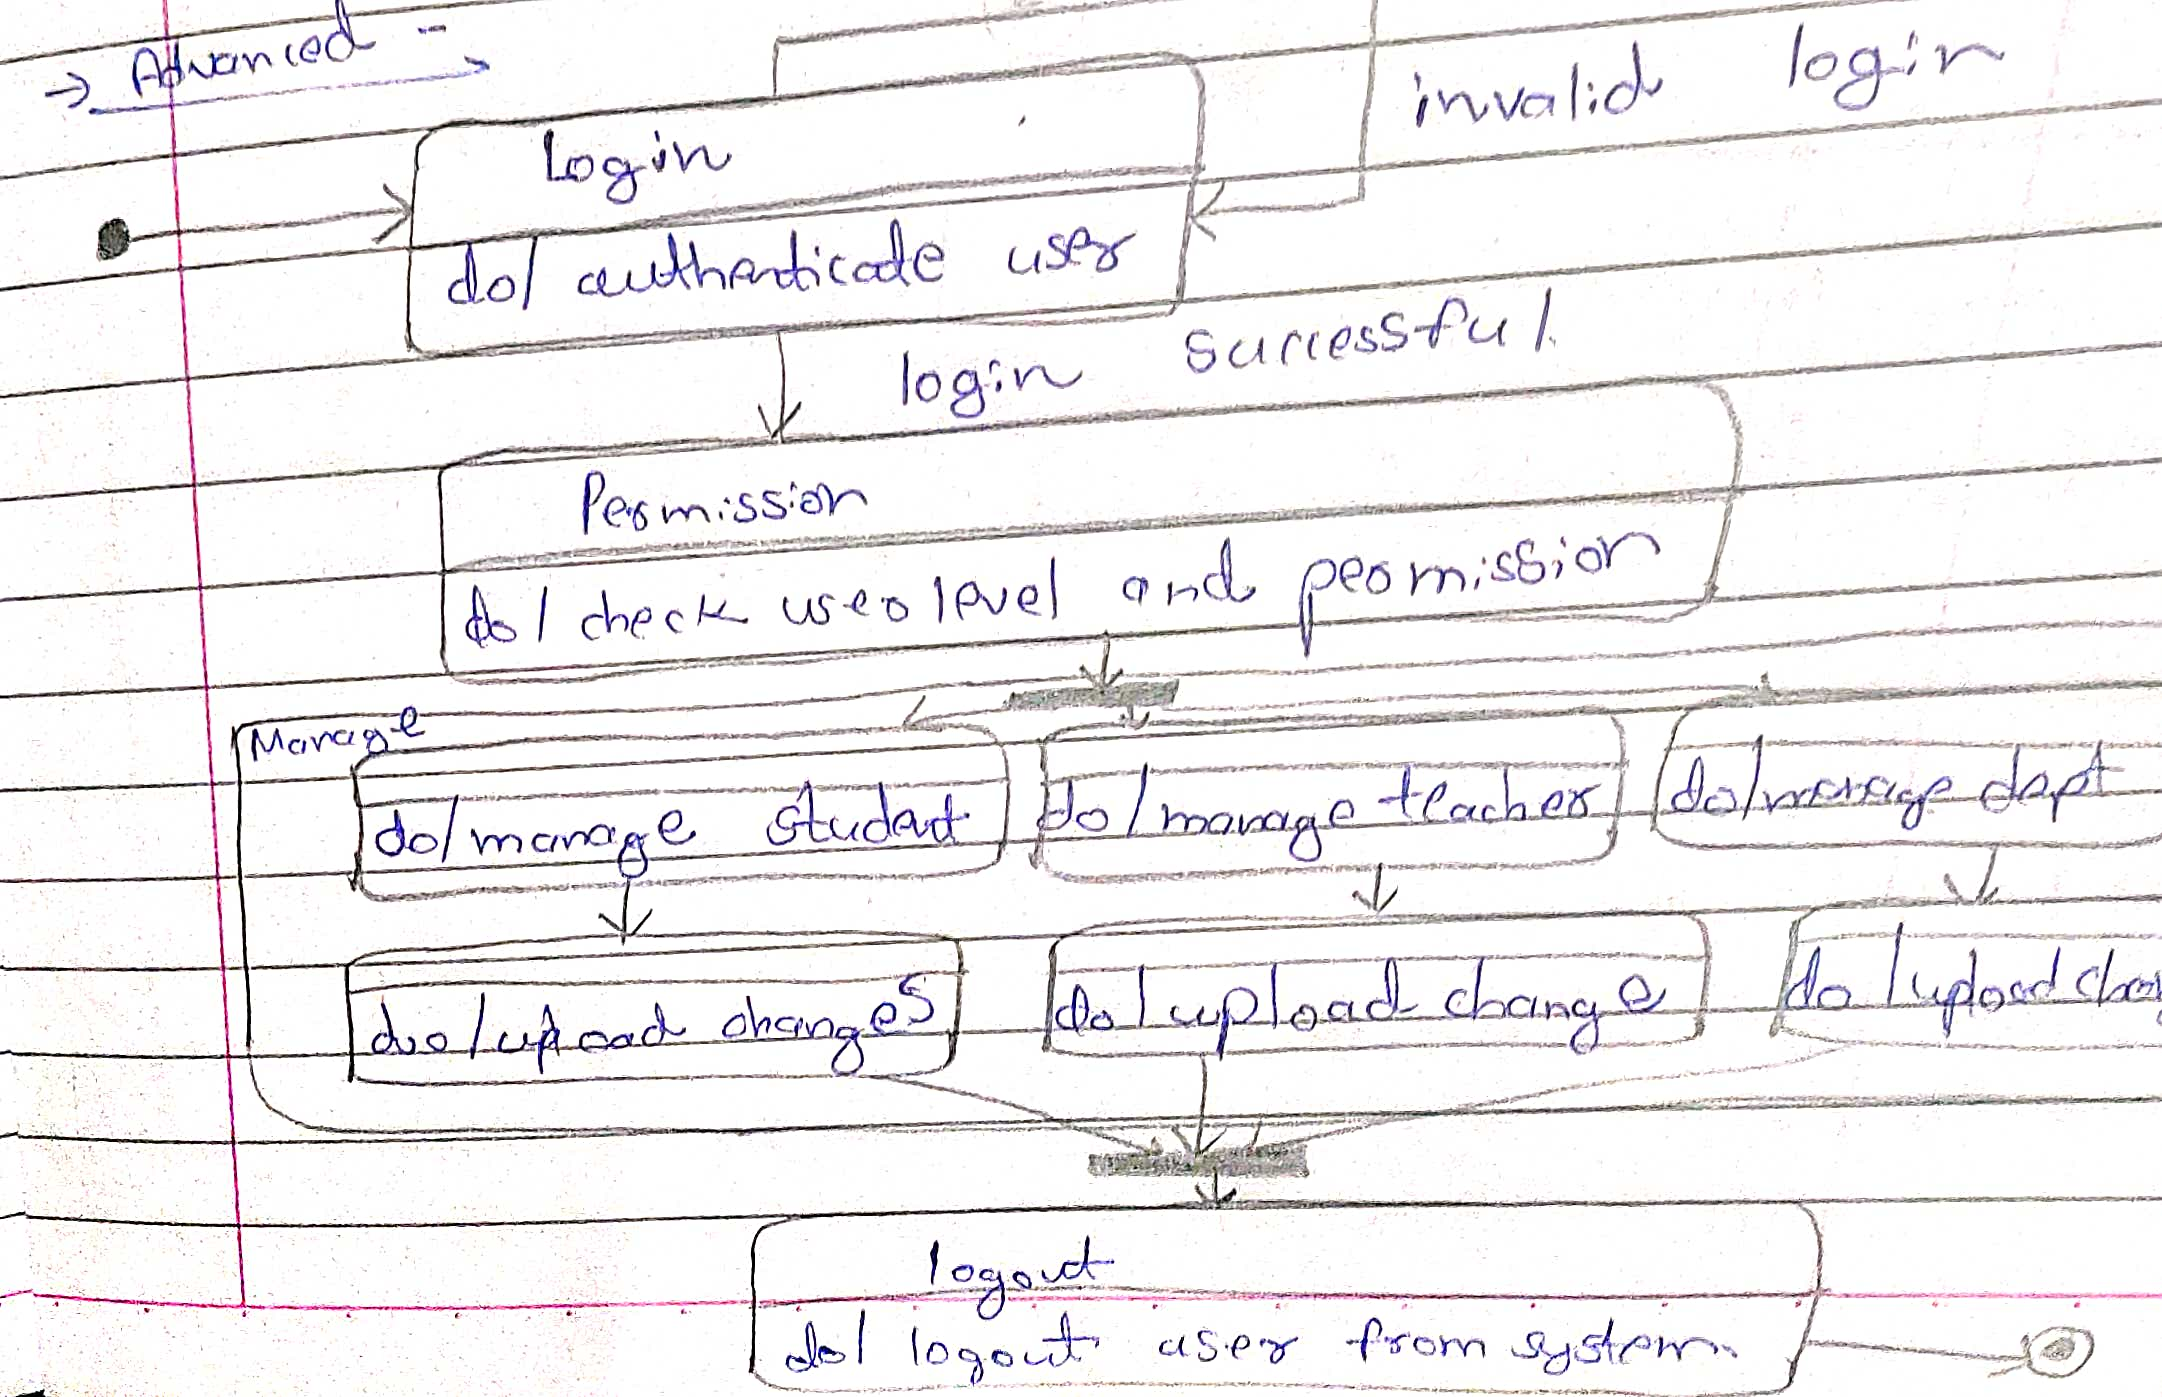 → Advanced -
invalid login
Login
do/ authenticate user
login successful
Permission
do/ check user level and permission
Manage
do/manage student
do/manage teacher
do/manage dept
do/upload changes
do/upload change
do/upload
logout
do/ logout user from system.